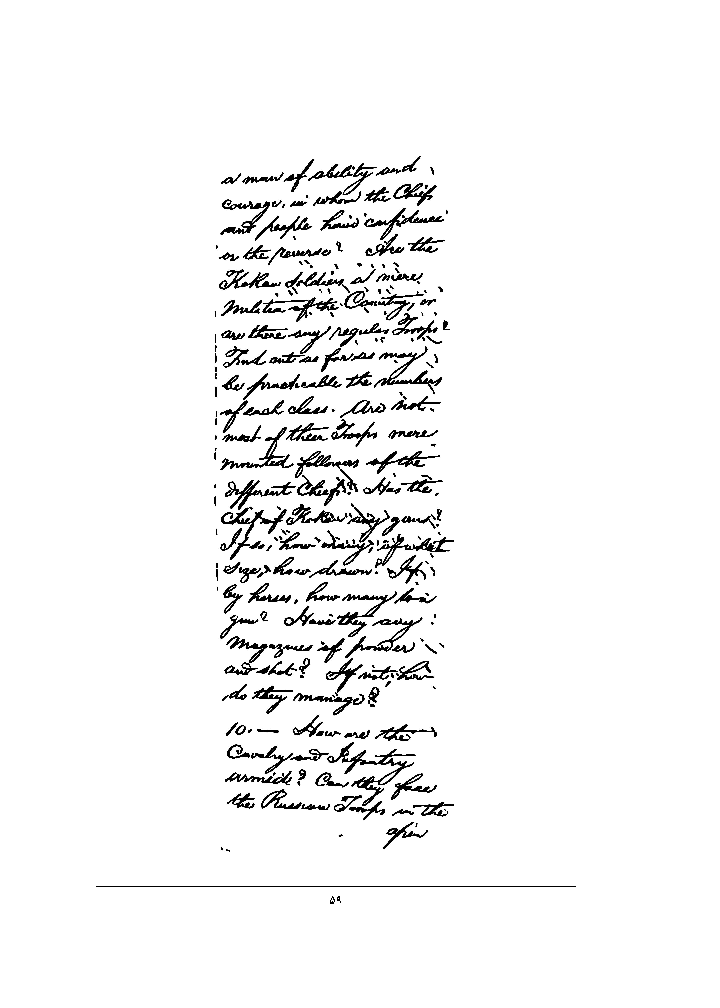 a man of ability and
courage, in whom the Chiefs
and people have confidence
or the reverse? Are the
Kokan Soldiers a mere
Militia of the Country, or
are there any regular Troops?
Find out as far as may
be practicable the numbers
of each class. Are not
most of their Troops mere
mounted followers of the
different Chiefs? Has the
Chief of Kokan any guns?
If so, how many, of what
size, how drawn? If
by horses, how many to a
gun? Have they any
Magazines of powder
and shot? If not, how
do they manage?
10. — How are the
Cavalry and Infantry
armed? Can they face
the Russian Troops in the
open
۵۹